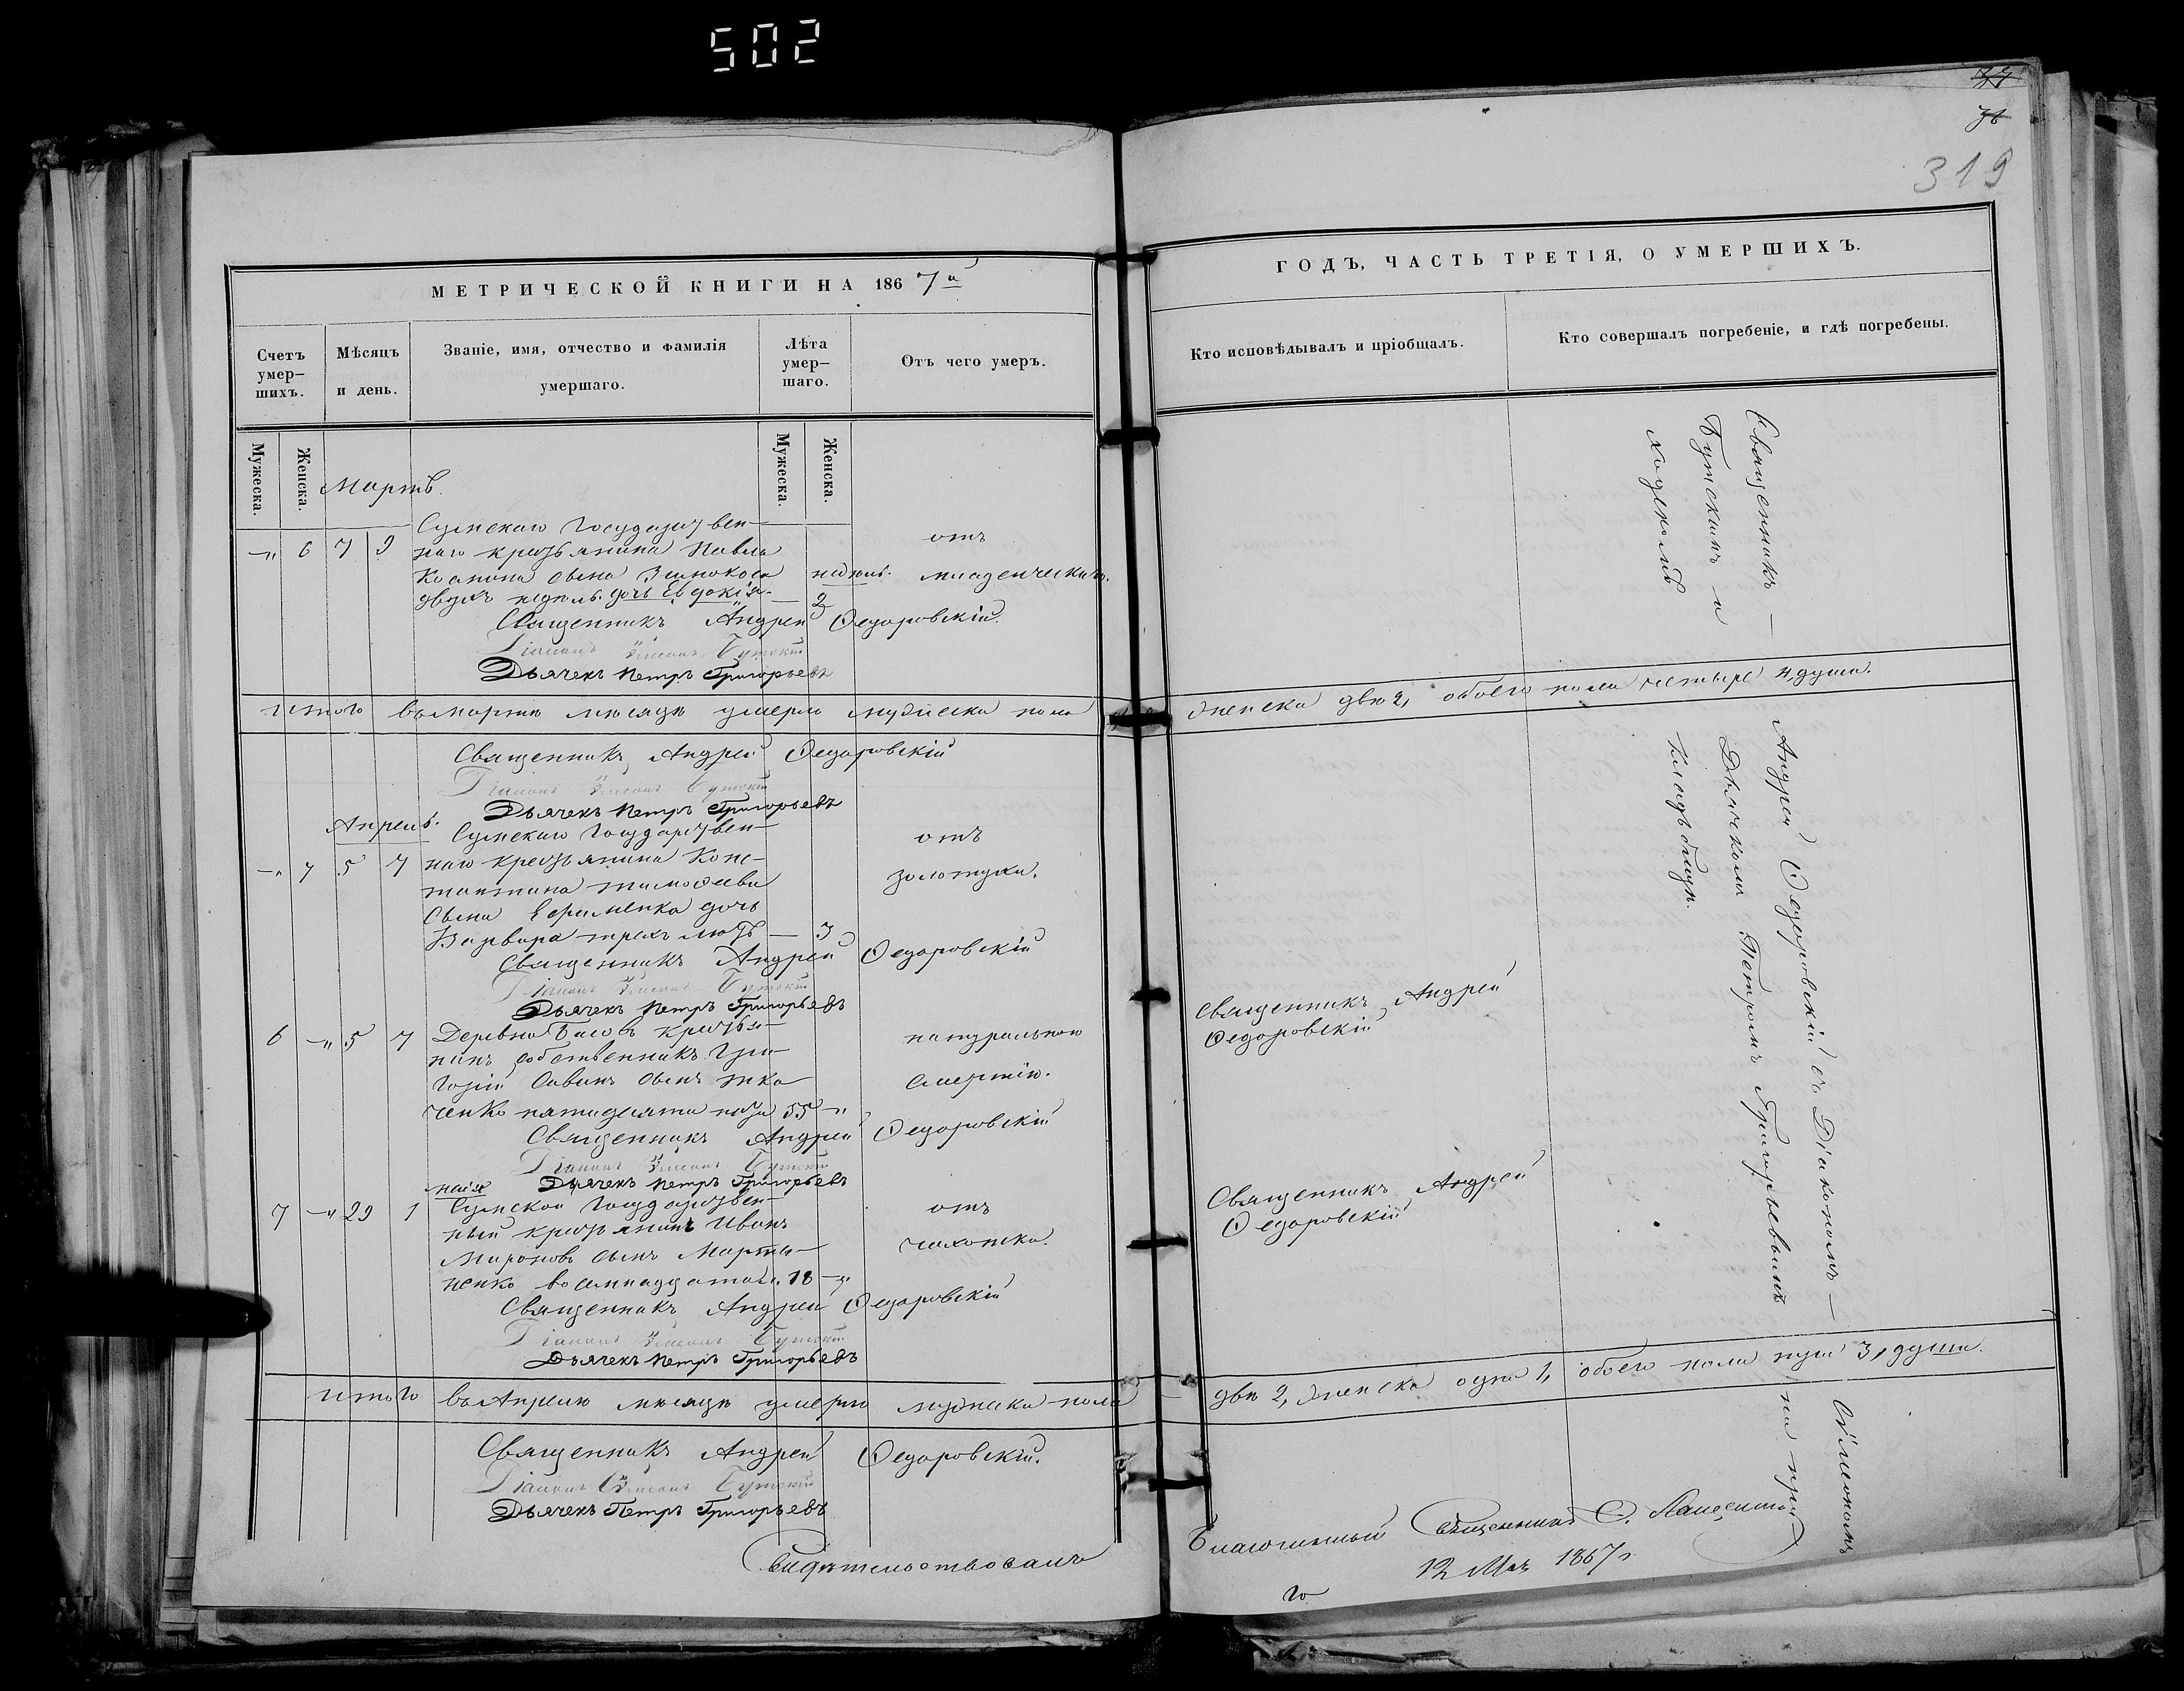 502
77
78
319
МЕТРИЧЕСКОЙ КНИГИ НА 1867й
Счетъ умер-шихъ.
Мѣсяцъ и день.
Званіе, имя, отчество и фамилія умершаго.
Лѣта умер-шаго.
Отъ чего умеръ.
Мужеска.
Женска.
Мужеска.
Женска.
Мартъ.
Сумскаго Государствен-
-„ 6 7 9 наго крестьянина Павла отъ
Козмина сына недѣль. младенческихъ.
двухъ недѣль дочь Евдокія. — 2
Священникъ Андрей Ѳедоровскій.
Діаконъ Бутскій
Дьячекъ Петръ Григорьевъ
Итого въ Мартѣ мѣсяцѣ умерло мужеска пола
Священникъ Андрей Ѳедоровскій
Діаконъ Бутскій
Дьячекъ Петръ Григорьевъ
Апрель.
Сумскаго Государствен- отъ
-„ 7 5 7 наго крестьянина Конс-
тантина Тимоѳеева золотухи.
сына Ефименка дочь
Варвара трехъ лѣтъ — 3
Священникъ Андрей Ѳедоровскій
Діаконъ Бутскій
Дьячекъ Петръ Григорьевъ
6 -„ 5 7 Деревни Басовъ крестья- натуральною
нинъ собственникъ Гри-
горій Саввинъ сынъ Тка- смертію.
ченко пятидесяти пяти 55 -„
Священникъ Андрей Ѳедоровскій
Діаконъ Бутскій
Дьячекъ Петръ Григорьевъ
мая
7 -„ 29 1 Сумской Государствен- отъ
ный крестьянинъ Иванъ
Мироновъ сынъ Марты- чахотки.
ненко восемнадцати л. 18 -„
Священникъ Андрей Ѳедоровскій
Діаконъ Бутскій
Дьячекъ Петръ Григорьевъ
Итого въ Апрелѣ мѣсяцѣ умерло мужеска пола
Священникъ Андрей Ѳедоровскій.
Діаконъ Бутскій
Дьячекъ Петръ Григорьевъ
Свидѣтельствовалъ
ГОДЪ, ЧАСТЬ ТРЕТІЯ, О УМЕРШИХЪ.
Кто исповѣдывалъ и пріобщалъ.
Кто совершалъ погребеніе, и гдѣ погребены.
Священникъ —
Бутскимъ и
ходскомъ
женска двѣ 2, обоего пола четыре 4, души.
Андрей Ѳедоровскій съ Діакономъ —
Дьячкомъ Петромъ Григорьевымъ
кладбищѣ.
Священникъ Андрей
Ѳедоровскій
Священникъ Андрей
Ѳедоровскій
двѣ 2, женска одна 1, обоего пола три 3, души.
Сѵмеономъ
на при
Благочинный Священникъ С.
12 Мая 1867 г.
го